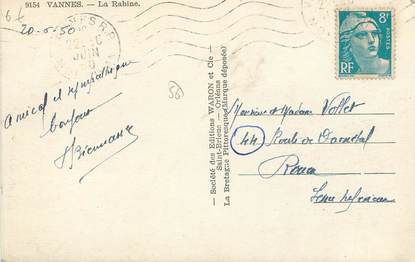 6€
9154 VANNES. — La Rabine.
20-6-50
JUIN
8F
POSTES
RF
Amical et sympathique
bonjour
50
— Société des Editions WARON et Cie —
Saint-Brieuc — Orléans
La Bretagne Pittoresque (Marque déposée)
Monsieur et Madame Vollet
44 Route de Darnétal
Rouen
Seine Inférieure